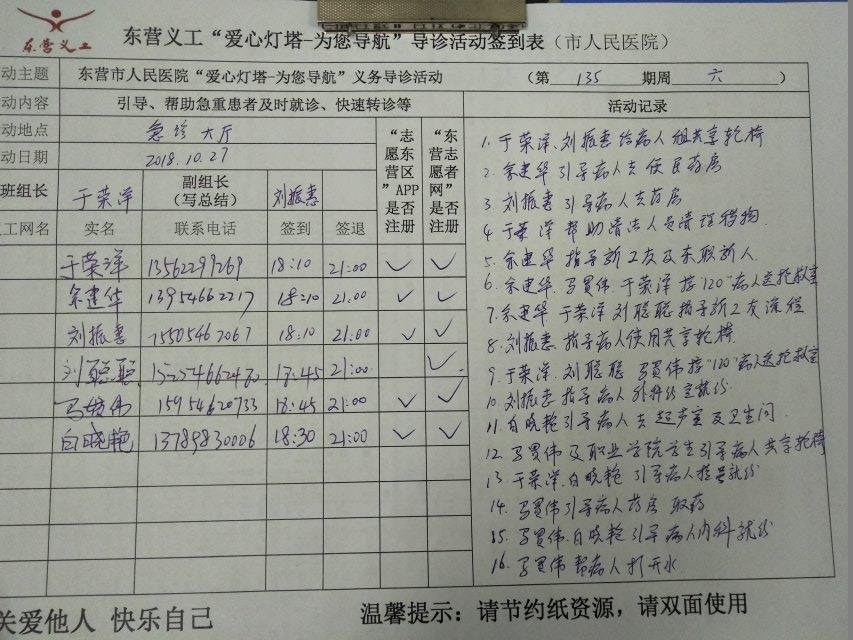 东营义工
东营义工“爱心灯塔-为您导航”导诊活动签到表（市人民医院）
动主题 东营市人民医院“爱心灯塔-为您导航”义务导诊活动 （第 135 期周 六 ）
动内容 引导、帮助急重患者及时就诊、快速转诊等 “志愿东营区”APP是否注册 “东营志愿者网”是否注册 活动记录
动地点 急诊大厅
动日期 2018.10.27
班组长 于荣洋 副组长（写总结） 刘振惠
工网名 实名 联系电话 签到 签退
于荣洋 13562299269 18:10 21:00 ✓ ✓
余建华 13954662217 18:10 21:00 ✓ ✓
刘振惠 15505462067 18:10 21:00 ✓ ✓
刘聪聪 18:45 21:00 ✓
15954620733 18:45 21:00 ✓ ✓
白晓艳 13789830006 18:30 21:00 ✓ ✓
1. 于荣洋、刘振惠给病人组共享轮椅
2. 余建华引导病人去便民药房
3. 刘振惠引导病人去药房
4. 于荣洋帮助清洁人员清理秽物
5. 余建华指导新义友及东职新人
6. 余建华、马贯伟、于荣洋接“120”病人送抢救室
7. 余建华于荣洋刘聪聪指导新义友流程
8. 刘振惠指导病人使用共享轮椅
9. 于荣洋、刘聪聪、马贯伟接“120”病人送抢救室
10. 刘振惠指导病人外科诊室就诊
11. 白晓艳引导病人去超声室及卫生间
12. 马贯伟及职业学院学生引导病人共享轮椅
13. 于荣洋、白晓艳引导病人挂号就诊
14. 马贯伟引导病人药房取药
15. 马贯伟、白晓艳引导病人内科就诊
16. 马贯伟帮病人打开水
关爱他人 快乐自己
温馨提示：请节约纸资源，请双面使用